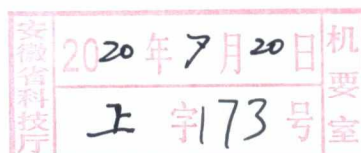 安徽省科技厅
2020年7月20日
上字173号
机要室